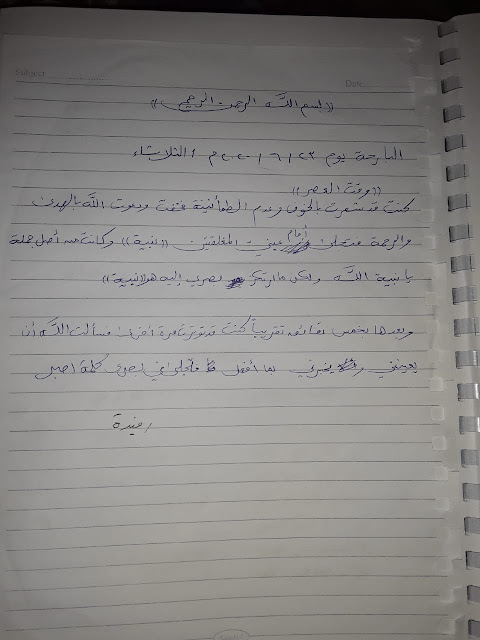 Subject:
Date:
((بسم الله الرحمن الرحيم))
البارحة يوم ٢٣ / ٦ / ٢٠٢٠م / الثلاثاء
((وقت العصر))
كنت قد شعرت بالخوف وعدم الطمأنينة فقمت ودعوت الله بالهدى
والرحمة فتجلى أمام عيني المغلقتين ((نبية)) وكانت من أصل جملة
يا نبية الله ولكن ما ارتكز بصري إليه هو ((نبية))
وبعدها بخمس دقائق تقريباً كنت قد توترت مرة أخرى فسألت الله أن
يعينني يخبرني ما أفعل فتجلى في بصري كلمة اصبر